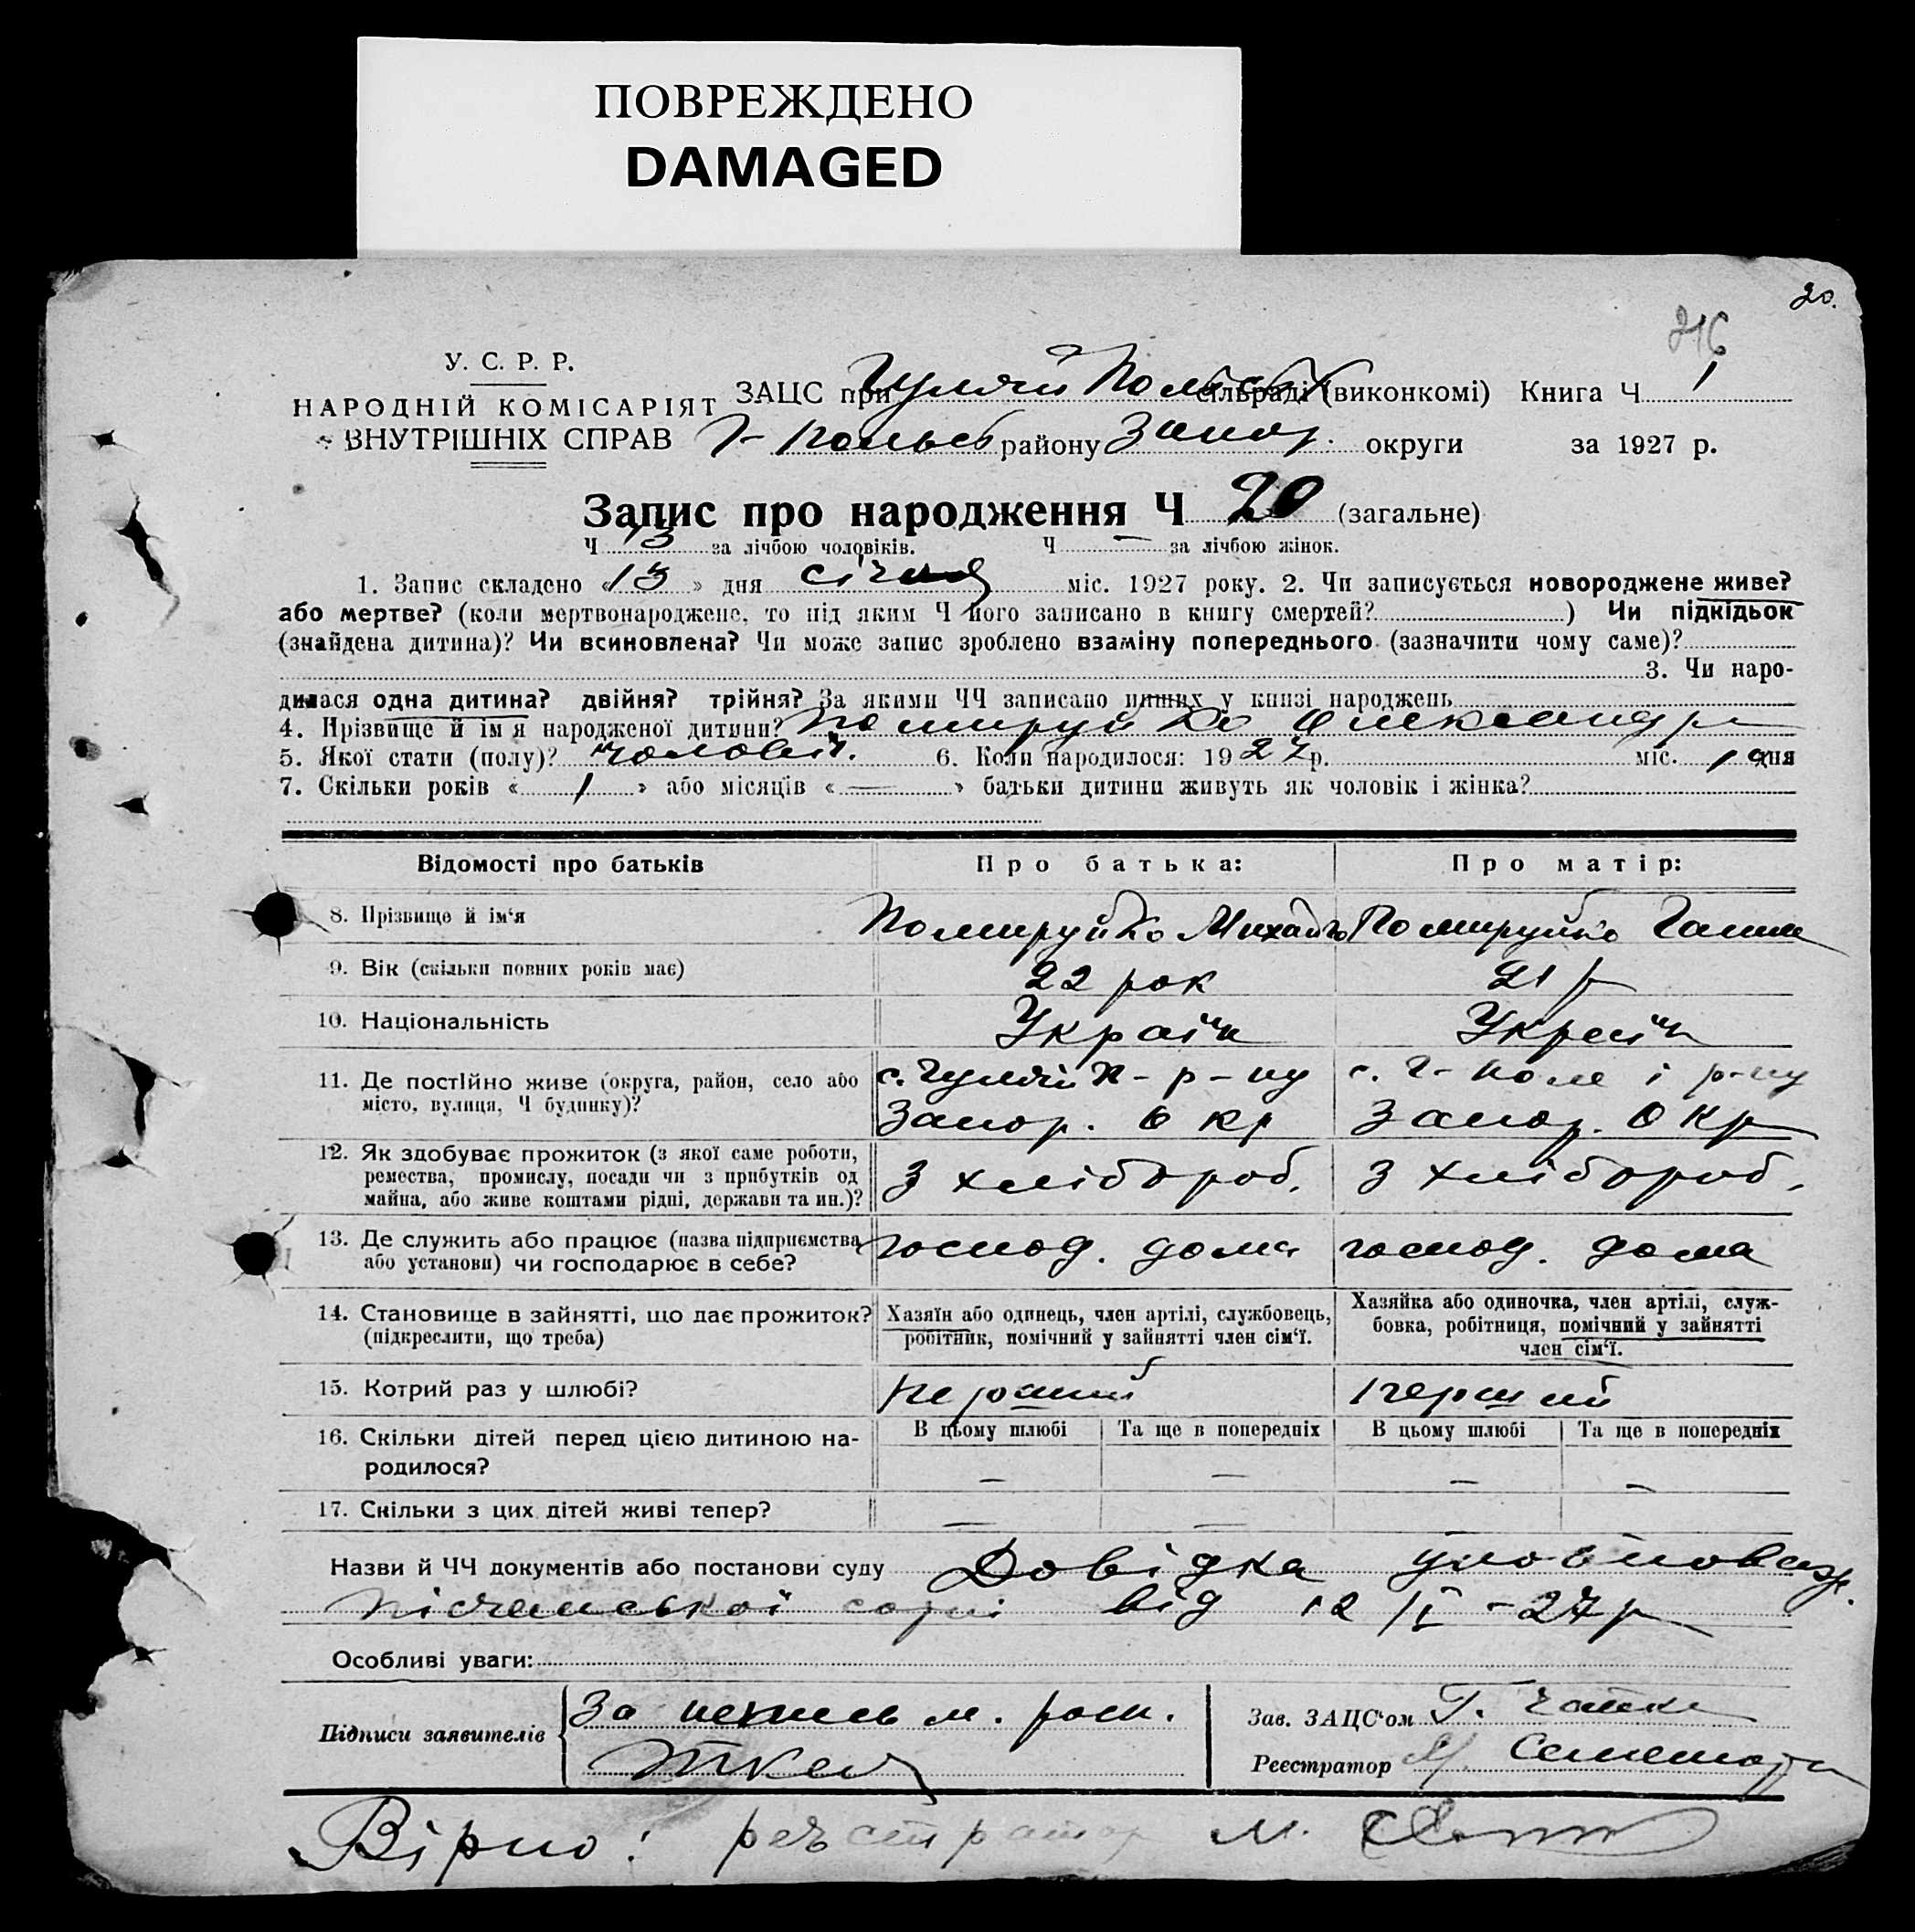 ПОВРЕЖДЕНО
DAMAGED
20.
216
У. С. Р. Р.
НАРОДНІЙ КОМІСАРІЯТ
ВНУТРІШНІХ СПРАВ
ЗАЦС при Гуляй Польск сільраді (виконкомі) Книга Ч 1
Г-Польсь району Запор. округи за 1927 р.
Запис про народження Ч 20 (загальне)
Ч 13 за лічбою чоловіків. Ч — за лічбою жінок.
1. Запис складено «13» дня січня міс. 1927 року. 2. Чи записується новороджене живе?
або мертве? (коли мертвонароджене, то під яким Ч його записано в книгу смертей? ) Чи підкідьок
(знайдена дитина)? Чи всиновлена? Чи може запис зроблено взаміну попереднього (зазначити чому саме)?
3. Чи наро-
дилася одна дитина? двійня? трійня? За якими ЧЧ записано инших у книзі народжень
4. Прізвище й ім'я народженої дитини? Помируйко Олександр
5. Якої стати (полу)? чоловіч. 6. Коли народилося: 1927 р. міс. 1 дня
7. Скільки років «1» або місяців «—» батьки дитини живуть як чоловік і жінка?
Відомості про батьків Про батька: Про матір:
8. Прізвище й ім'я Помируйко Михайло Помируйко Ганна
9. Вік (скільки повних років має) 22 рок 21 р
10. Національність Україн Україн
11. Де постійно живе (округа, район, село або місто, вулиця, Ч будинку)? с. Гуляй П- р-ну Запор. Окр с. Г-Поле і р-ну Запор. Окр
12. Як здобуває прожиток (з якої саме роботи, ремества, промислу, посади чи з прибутків од майна, або живе коштами рідні, держави та ин.)? З хлібороб. З хлібороб.
13. Де служить або працює (назва підприємства або установи) чи господарює в себе? господ. дома господ. дома
14. Становище в зайнятті, що дає прожиток? (підкреслити, що треба) Хазяїн або одинець, член артілі, службовець, робітник, помічний у зайнятті член сім'ї. Хазяйка або одиночка, член артілі, служ-бовка, робітниця, помічний у зайнятті член сім'ї.
15. Котрий раз у шлюбі? перший перший
16. Скільки дітей перед цією дитиною на-родилося? В цьому шлюбі — Та ще в попередніх — В цьому шлюбі — Та ще в попередніх —
17. Скільки з цих дітей живі тепер? — —
Назви й ЧЧ документів або постанови суду Довідка уповноваж.
Піщанської сотні від 12/I-27 р
Особливі уваги:
Підписи заявителів За непись м. росп.
Зав. ЗАЦС'ом Г.
Реєстратор
Вірно: реєстратор М.